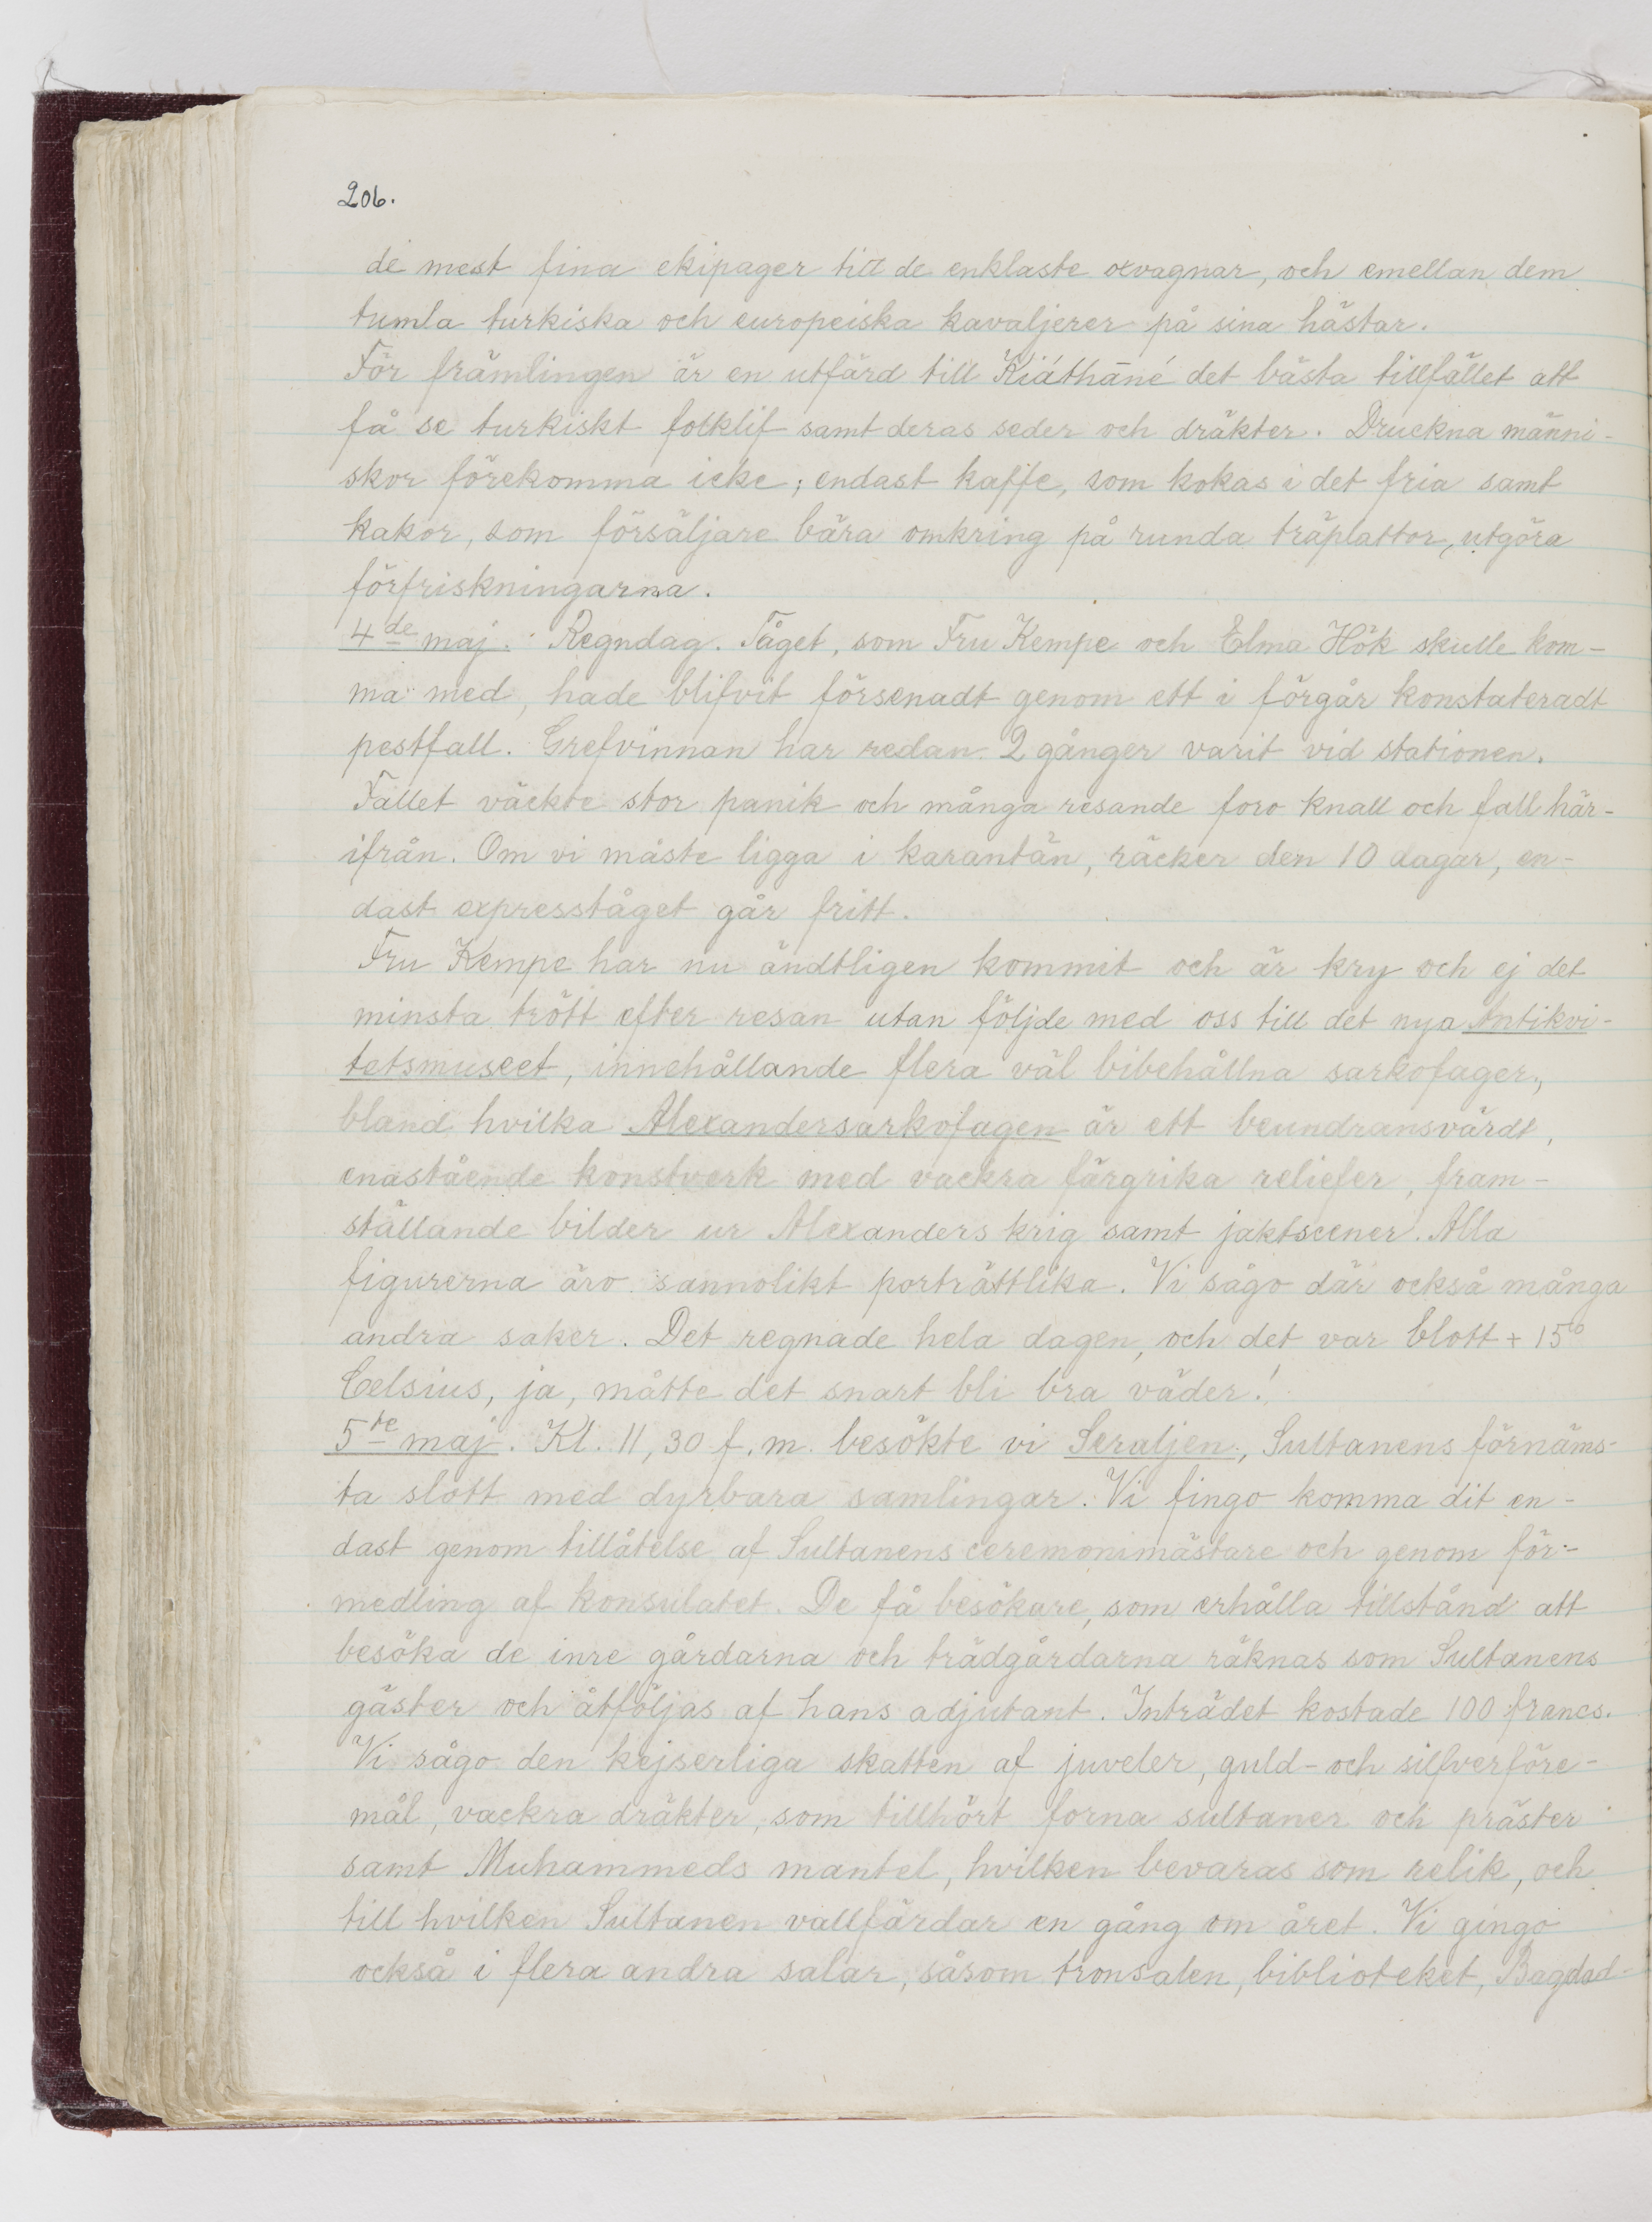 206.
de mest fina ekipager till de enklaste oxvagnar, och emellan dem
tumla turkiska och europeiska kavaljerer på sina hästar.
För främlingen är en utfärd till Kiáthāné det bästa tillfället att
få se turkiskt folklif samt deras seder och dräkter. Druckna männi-
skor förekomma icke; endast kaffe, som kokas i det fria samt
kakor, som försäljare bära omkring på runda träplattor, utgöra
förfriskningarna.
4de maj. Regndag. Tåget, som Fru Kempe och Elma Hök skulle kom-
ma med, hade blifvit försenadt genom ett i förgår konstateradt
pestfall. Grefvinnan har redan 2 gånger varit vid stationen.
Fallet väckte stor panik och många resande foro knall och fall här-
ifrån. Om vi måste ligga i karantän, räcker den 10 dagar, en-
dast expresståget går fritt.
Fru Kempe har nu ändtligen kommit och är kry och ej det
minsta trött efter resan utan följde med oss till det nya Antikvi-
tetsmuseet, innehållande flera väl bibehållna sarkofager,
bland hvilka Alexandersarkofagen är ett beundransvärdt,
enastående konstverk med vackra färgrika reliefer, fram-
ställande bilder ur Alexanders krig samt jaktscener. Alla
figurerna äro sannolikt porträttlika. Vi sågo där också många
andra saker. Det regnade hela dagen, och det var blott + 15°
Celsius, ja, måtte det snart bli bra väder!
5te maj. Kl. 11,30 f.m. besökte vi Seraljen, Sultanens förnäms-
ta slott med dyrbara samlingar. Vi fingo komma dit en-
dast genom tillåtelse af Sultanens ceremonimästare och genom för-
medling af konsulatet. De få besökare, som erhålla tillstånd att
besöka de inre gårdarna och trädgårdarna räknas som Sultanens
gäster och åtföljas af hans adjutant. Inträdet kostade 100 francs.
Vi sågo den kejserliga skatten af juveler, guld- och silfverföre-
mål, vackra dräkter, som tillhört forna sultaner och präster
samt Muhammeds mantel, hvilken bevaras som relik, och
till hvilken Sultanen vallfärdar en gång om året. Vi gingo
också i flera andra salar, såsom tronsalen, biblioteket, Bagdad-